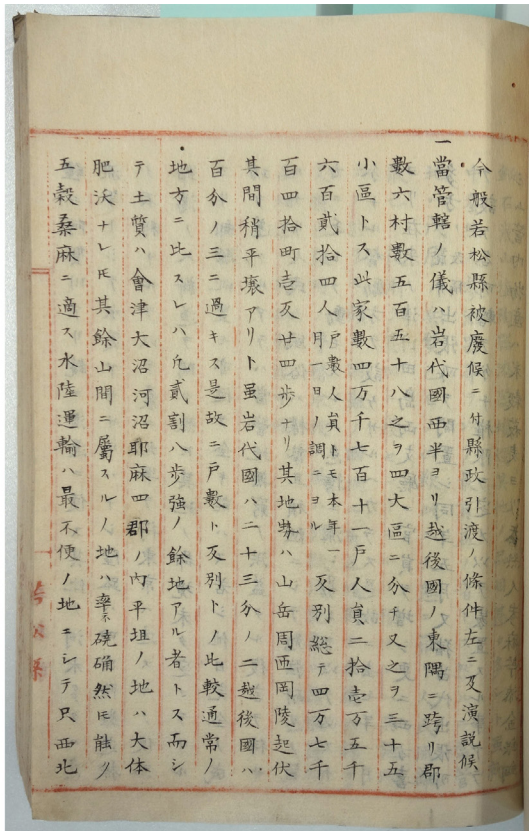 今般若松縣被廢候ニ付縣政引渡ノ條件左ニ及演説候
一當管轄ノ儀ハ岩代國西半ヨリ越後國ノ東隅ニ跨リ郡
數六村數五百五十八之ヲ四大區ニ分チ又之ヲ三十五
小區トス此家數四万千七百十一戸人員二拾壱万五千
六百貳拾四人戸數人員トモ本年一月一日ノ調ニヨル反別総テ四万七千
百四拾町壱反廿四歩ナリ其地勢ハ山岳周匝岡陵起伏
其間稍平壌アリト雖岩代國ハ二十三分ノ二越後國ハ
百分ノ三ニ過キス是故ニ戸數ト反別トノ比較通常ノ
地方ニ比スレハ凡貳割八歩強ノ餘地アル者トス而シ
テ土質ハ會津大沼河沼耶麻四郡ノ内平坦ノ地ハ大体
肥沃ナレ𪜈其餘山間ニ屬スルノ地ハ率ネ磽确然𪜈能ク
五穀桑麻ニ適ス水陸運輸ハ最不便ノ地ニシテ只西北
若松縣